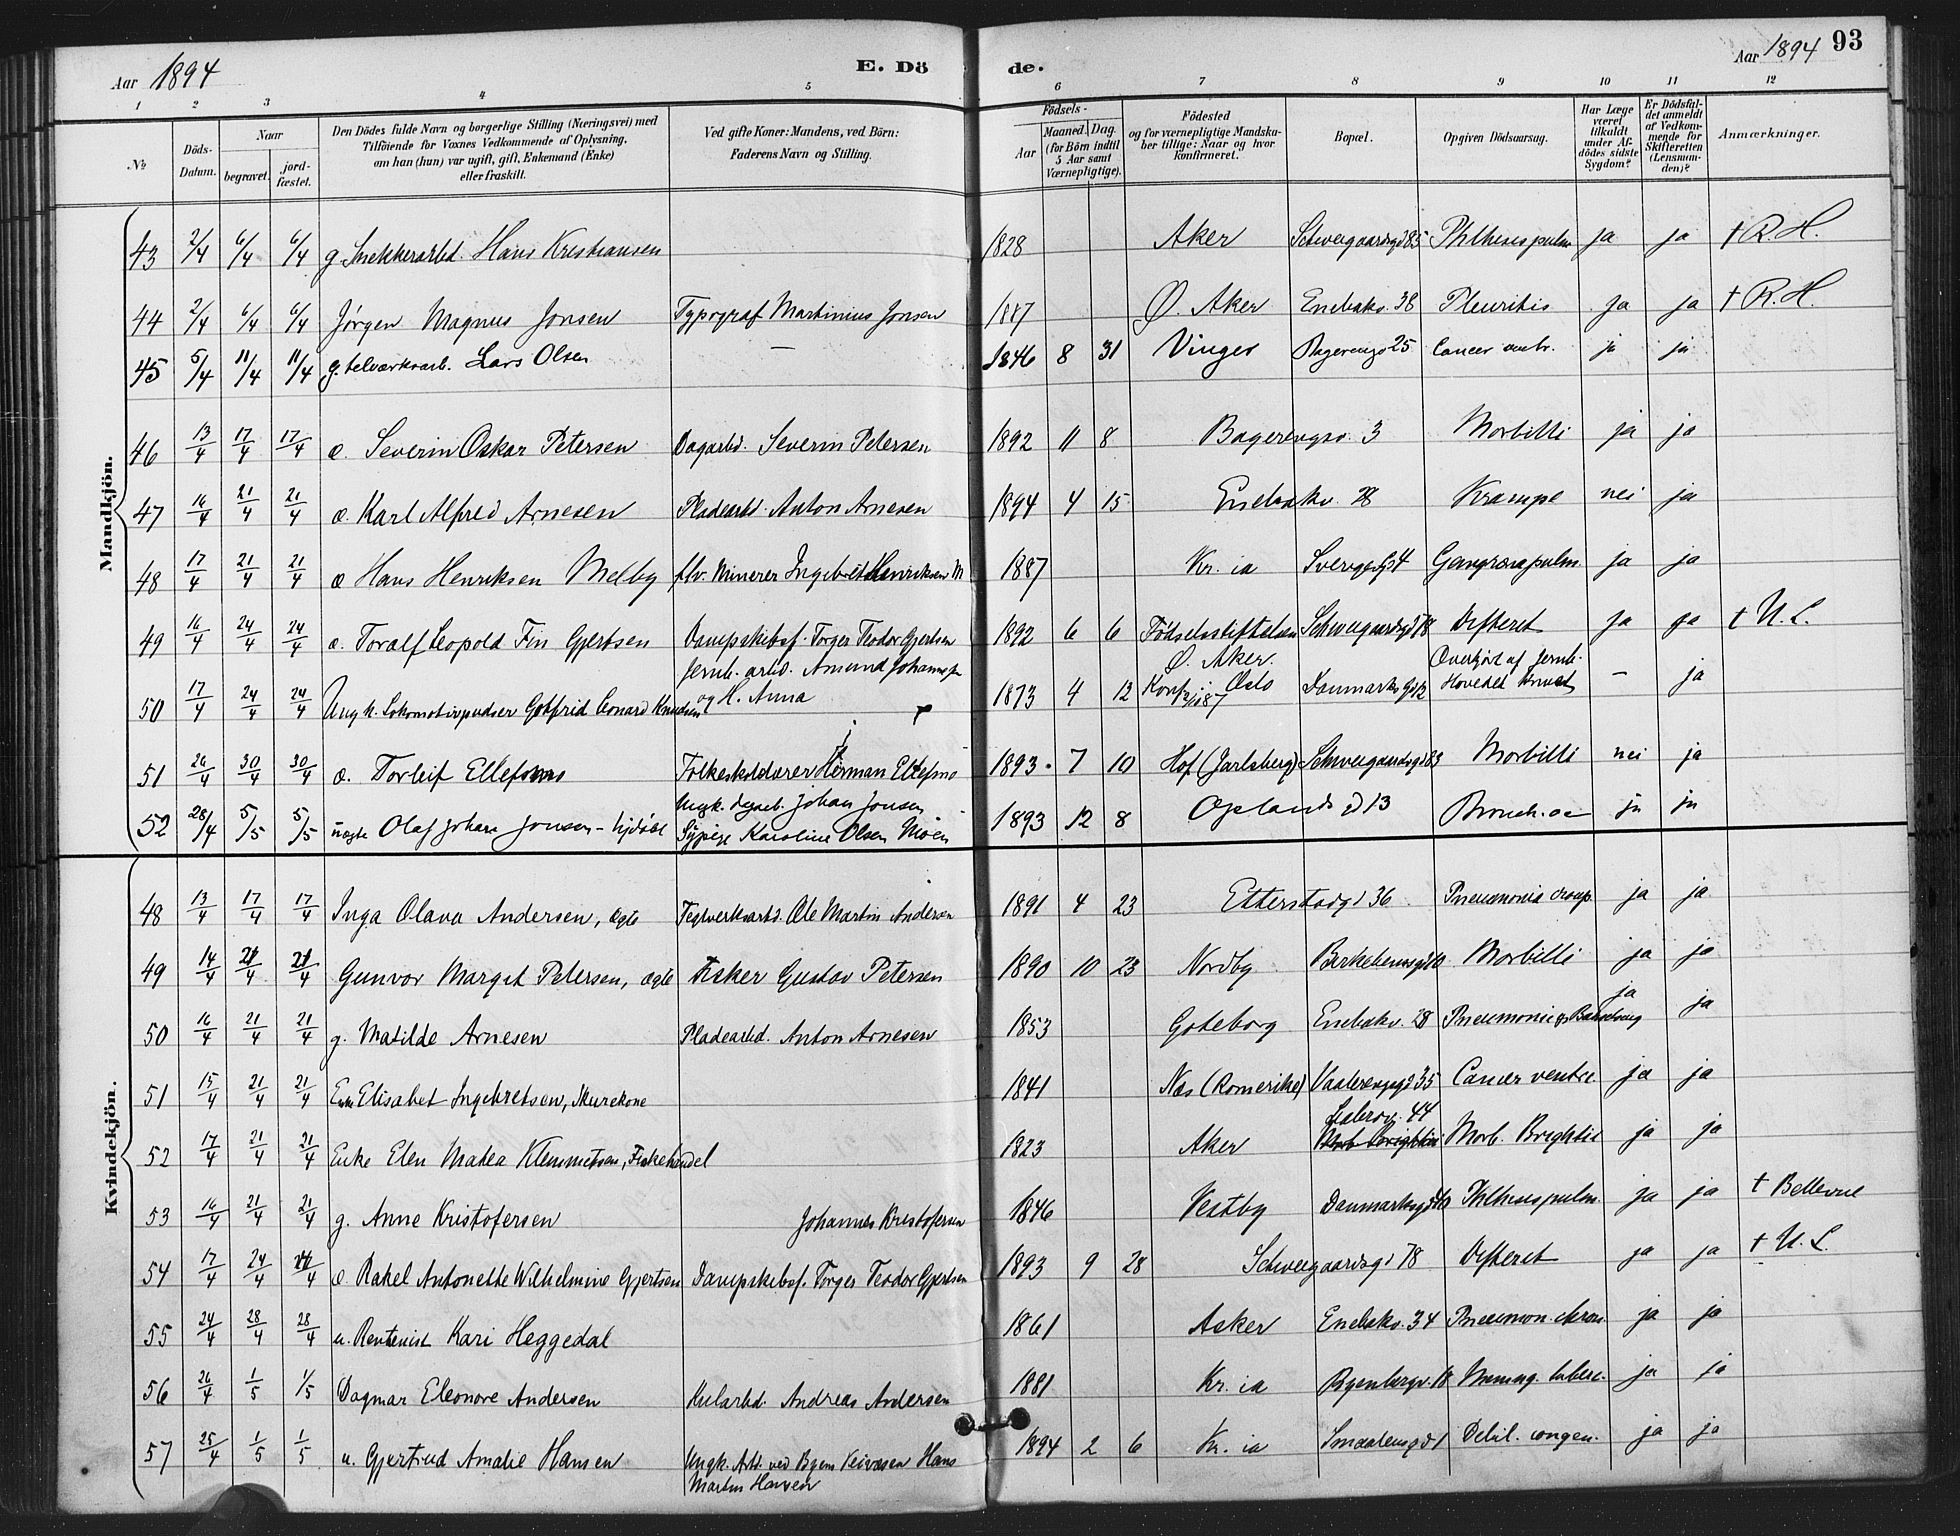 Aar 1894 E. Dö de. Aar 1894 93
1 2 3 4 5 6 7 8 9 10 11 12
№ Döds-Datum. Naar begravet. jord-fæstet. Den Dödes fulde Navn og borgerlige Stilling (Næringsvei) med Tilföiende for Voxnes Vedkommende af Oplysning, om han (hun) var ugift, gift, Enkemand (Enke) eller fraskilt. Ved gifte Koner: Mandens, ved Börn: Faderens Navn og Stilling. Födsels- Aar Maaned. Dag. (for Börn indtil 5 Aar samt Værnepligtige). Födested og for værnepligtige Mandska-ber tillige: Naar og hvor konfirmeret. Bopæl. Opgiven Dödsaarsag. Har Læge været tilkaldt under Af-dödes sidste Sygdom? Er Dödsfal-det anmeldt af Vedkom-mende for Skifteretten (Lensman-den)? Anmærkninger.
Mandkjön.
43 2/4 6/4 6/4 g. Snekkerarbd. Hans Kristiansen 1828 Aker Schweigaardsgd 85 Phthisis pulm ja ja † R. H.
44 2/4 6/4 6/4 Jørgen Magnus Jonsen Typograf Martinius Jonsen 1887 Ø. Aker Enebakv. 38 Pleuritis ja ja † R. H.
45 5/4 11/4 11/4 g. Lars Olsen — 1846 8 31 Vinger 25 Cancer ja ja
46 13/4 17/4 17/4 æ. Severin Oskar Petersen Dagarbd. Severin Petersen 1892 11 8 Bagerengsv. 3 Morbilli ja ja
47 16/4 21/4 21/4 æ. Karl Alfred Arnesen Pladearbd. Anton Arnesen 1894 4 15 Enebakv. 28 Krampe nei ja
48 17/4 21/4 21/4 æ Hans Henriksen Melby Minerer Henriksen M 1887 Kr. ia Gangræna pulm. ja ja
49 16/4 24/4 24/4 æ. Toralf Leopold Fin Gjertsen Dampskibsf. Torger Teodor Gjertsen 1892 6 6 Fødselsstiftelsen Schweigaardsgd 78 Difterit ja ja † U. L.
Jernb. arbd. Amund Johannesen Ø. Aker. Overkjørt af Jernb.
50 17/4 24/4 24/4 Ungk. Lokomotivpudser Gotfrid Leonard Knudsen og H. Anna 1873 4 12 Konf. i Oslo Danmarks Hovedet knust — ja
51 26/4 30/4 30/4 æ. Torleif Ellefsmo Folkeskolelærer Herman Ellefsmo 1893 7 10 Hof (Jarlsberg) Schweigaardsgd 83 Morbilli nei ja
Ungk. Johan Jonsen
52 28/4 5/5 5/5 uægte Olaf Johan Jonsen - hjdøbt Sypige Karoline Olsen Moen 1893 12 8 Oplandsgd 13 ja ja
Kvindekjön.
48 13/4 17/4 17/4 Inga Olava Andersen, ægte Teglverksarbd. Ole Martin Andersen 1891 4 23 Etterstadgd 36 Pneumonia croup. ja ja
49 14/4 21/4 21/4 Gunvor Margit Petersen, ægte Fisker Gustav Petersen 1890 10 23 Nordby Birkebeinergd 10 Morbilli ja ja
50 16/4 21/4 21/4 g. Matilde Arnesen Pladearbd. Anton Arnesen 1853 Göteborg Enebakv. 28 Pneumonie og Barselseng ja ja
51 15/4 21/4 21/4 Enke Elisabet Ingebretsen, Skurekone 1841 Næs (Romerike) Vaalerenggd 35 Cancer ventric ja ja
52 17/4 21/4 21/4 Enke Elen Matea Klemmetsen, Fiskehandel 1823 Aker 44 Morb. Brightii ja ja
53 16/4 21/4 21/4 g. Anne Kristofersen Johannes Kristofersen 1846 Vestby Danmarksgd 10 Phthisis pulm. ja ja † Bellevue
54 17/4 24/4 24/4 æ. Rakel Antonette Wilhelmine Gjertsen Dampskibsf. Torger Teodor Gjertsen 1893 9 28 Schweigaardsgd 78 Difterit ja ja † U. L.
55 24/4 28/4 28/4 u. Rentenist Kari Heggedal 1861 Asker Enebakv. 34 Pneumon. chron. ja ja
56 26/4 1/5 1/5 Dagmar Eleonore Andersen Andreas Andersen 1881 Kr. ia Ryenbergv. 18 Mening. tuberc. ja ja
57 25/4 1/5 1/5 u. Gjertrud Amalie Hansen Ungk. Arbd. ved Byens Veivæsen Hans 1894 2 6 Kr. ia Smaalensgd 1 Debil. congen. ja ja
Martin Hansen